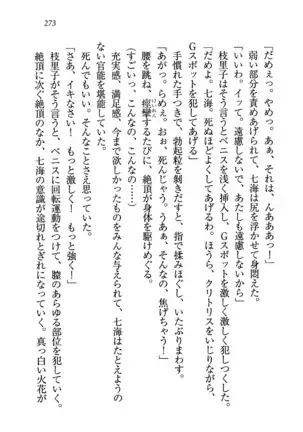 273
「だめぇっ。やめっ。あぁ、それは、んあああ！」
弱い部分を責めあげられて、七海は尻を浮かせて身悶えた。
「いいわ。イッて。遠慮しないで、あたしも遠慮しないから」
枝里子はそう言うとペニスを浅く挿入し、Gスポットを激しく犯しつくした。
「だめよ。七海。死ぬほどよくしてあげる。ほうら、クリトリスをいじりながら、
Gスポットを犯してあげるわ」
手慣れた手つきで、勃起粒を剝きだすと、指で揉みほぐし、いたぶりまわす。
「あがっ。らめぇっ。おぉ、死んじゃう。うあぁ、そんなの、焦げちゃう！」
腰を跳ね、痙攣するたびに、絶頂が身体を駆けめぐる。
（すごいっ、こんな、こんなの……）
充実感、満足感、今まで欲しかったものをみんな与えられて、七海はたとえようの
ない官能を堪能していた。
死んでもいい。そんなことさえ思っていた。
「さあ、イキなさい！　もっと激しく！　もっと強く！」
枝里子はそう言うと、ペニスに回転運動をつけて、膣のあらゆる部位を犯していく。
際限なくつづく絶頂のなか、七海の意識が途切れとぎれになっていく。真っ白い火花が